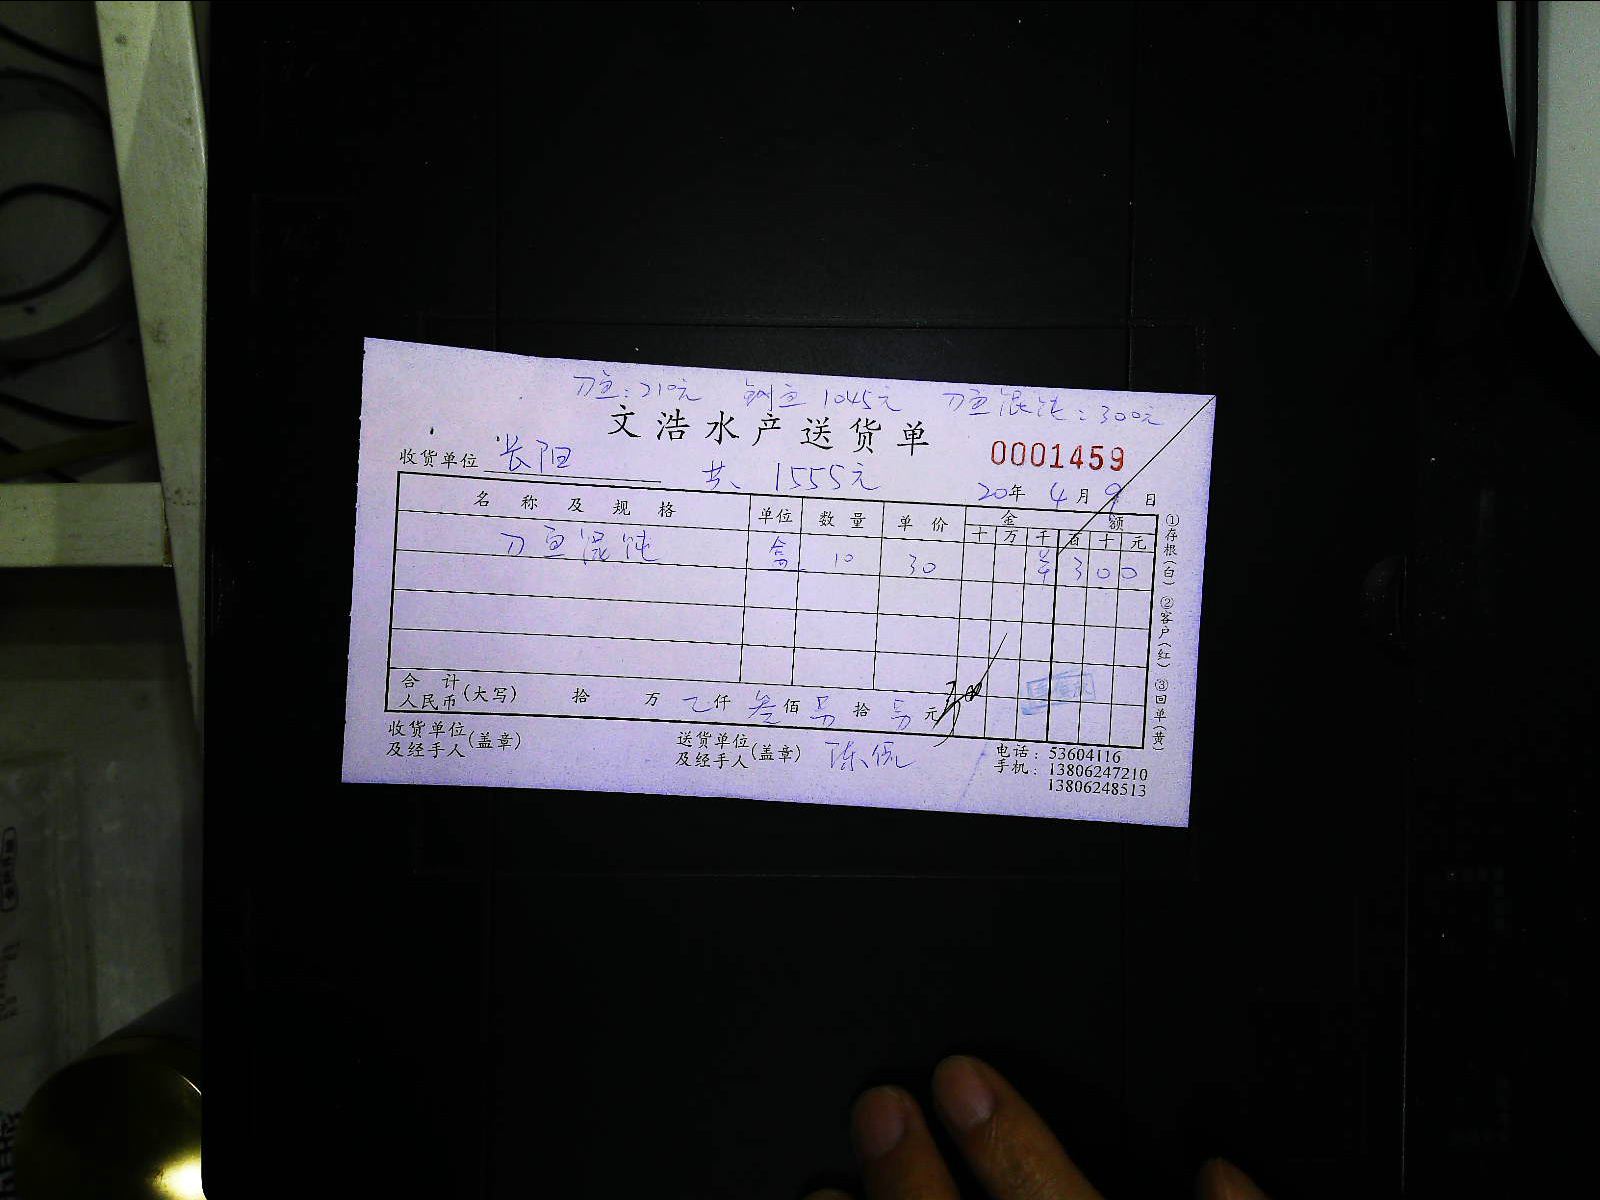 刀鱼:210元 鲥鱼1045元 刀鱼混沌:300元
文浩水产送货单
0001459
收货单位 长阳
共、1555元
20年4月9日
名称及规格 单位 数量 单价 金额
十 万 千 百 十 元
刀鱼混沌 盒 10 30 ¥ 3 0 0
合计
人民币(大写) 拾 万 乙仟 叁佰 另拾 另元
300
收货单位及经手人(盖章)
送货单位及经手人(盖章) 陈
电话:53604116
手机:13806247210
13806248513
①存根(白) ②客户(红) ③回单(黄)